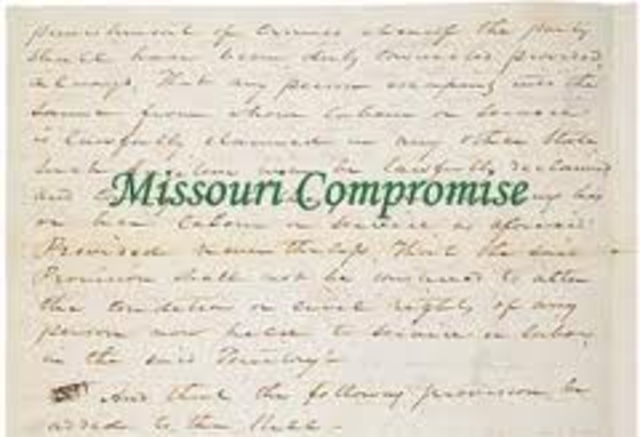 punishment of crimes whereof the party
shall have been duly convicted provided
always, That any person escaping into the
same from whom labour or service
is lawfully claimed in any other State
such fugitive may be lawfully reclaimed
and
Missouri Compromise
or her labour or service as aforesaid
Provided nevertheless, That the said
Provision shall not be construed to alter
the condition or civil rights of any
person now held to service or labor
in the said Territory
And that the following provision be
added to the Bill -